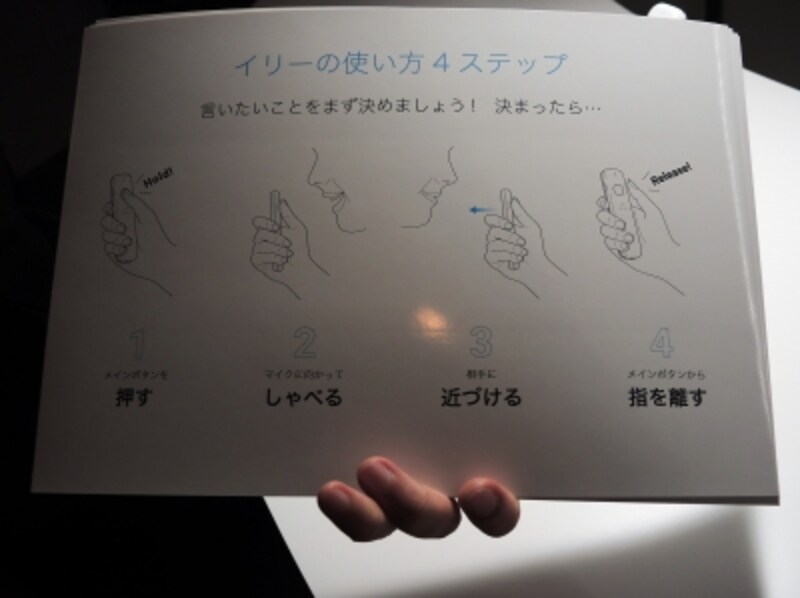 イリーの使い方4ステップ
言いたいことをまず決めましょう! 決まったら…
Hold!
Release!
1
メインボタンを
押す
2
マイクに向かって
しゃべる
3
相手に
近づける
4
メインボタンから
指を離す